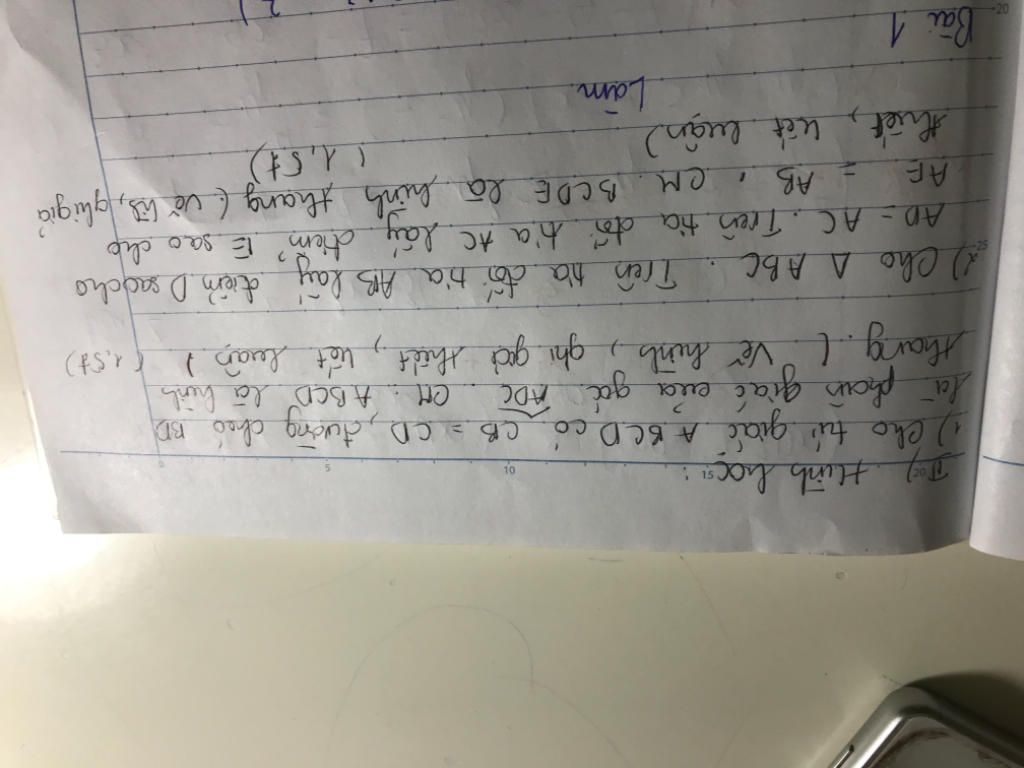 II) Hình học:
1) Cho tứ giác ABCD có CB = CD, đường chéo BD
là phân giác của góc ADC. CM: ABCD là hình
thang. ( Vẽ hình, ghi giả thiết, kết luận ) ( 1,5đ)
2) Cho Δ ABC. Trên tia đối tia AB lấy điểm D sao cho
AD = AC. Trên tia đối tia AC lấy điểm E sao cho
AE = AB. CM BCDE là hình thang ( vẽ hình, ghi giả
thiết, kết luận) ( 1,5đ)
Làm
Bài 1